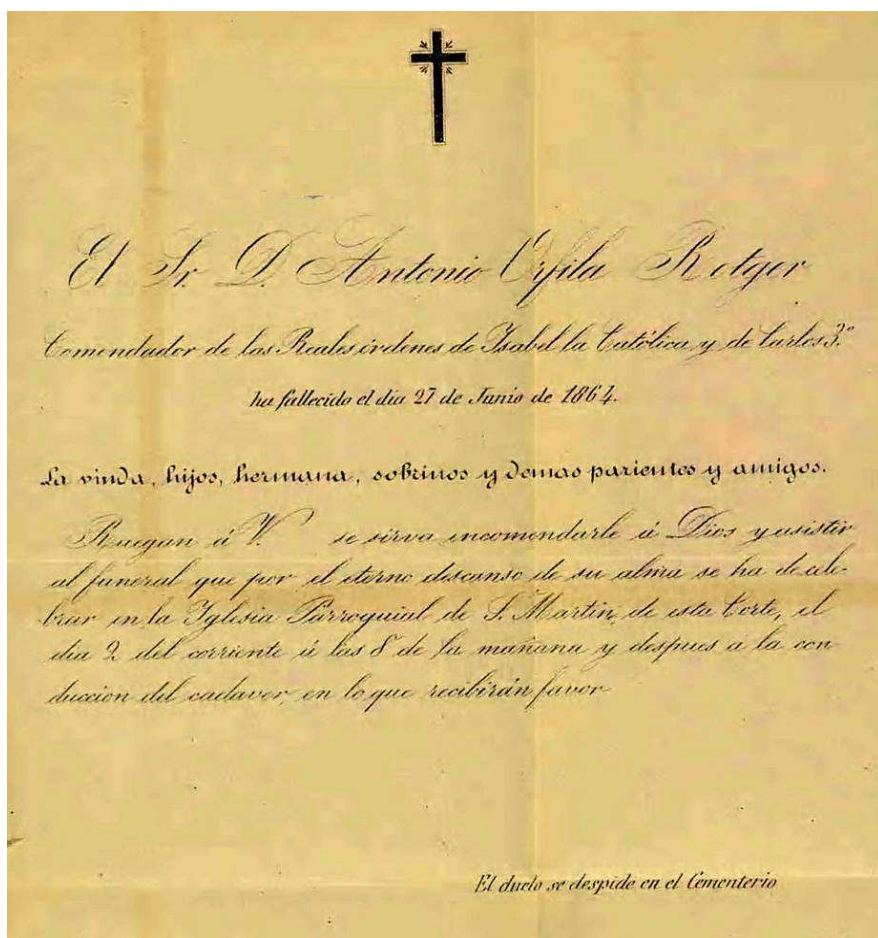 El Sr. D. Antonio Orfila Rotger
Comendador de las Reales órdenes de Isabel la Católica y de Carlos 3.º
ha fallecido el dia 27 de Junio de 1864.
La viuda, hijos, hermana, sobrinos y demas parientes y amigos.
Ruegan á V. se sirva encomendarle á Dios y asistir
al funeral que por el eterno descanso de su alma se ha de cele-
brar en la Yglesia Parroquial de S. Martin, de esta Corte, el
dia 2 del corriente á las 8 de la mañana y despues a la con-
duccion del cadaver, en lo que recibirán favor
El duelo se despide en el Cementerio